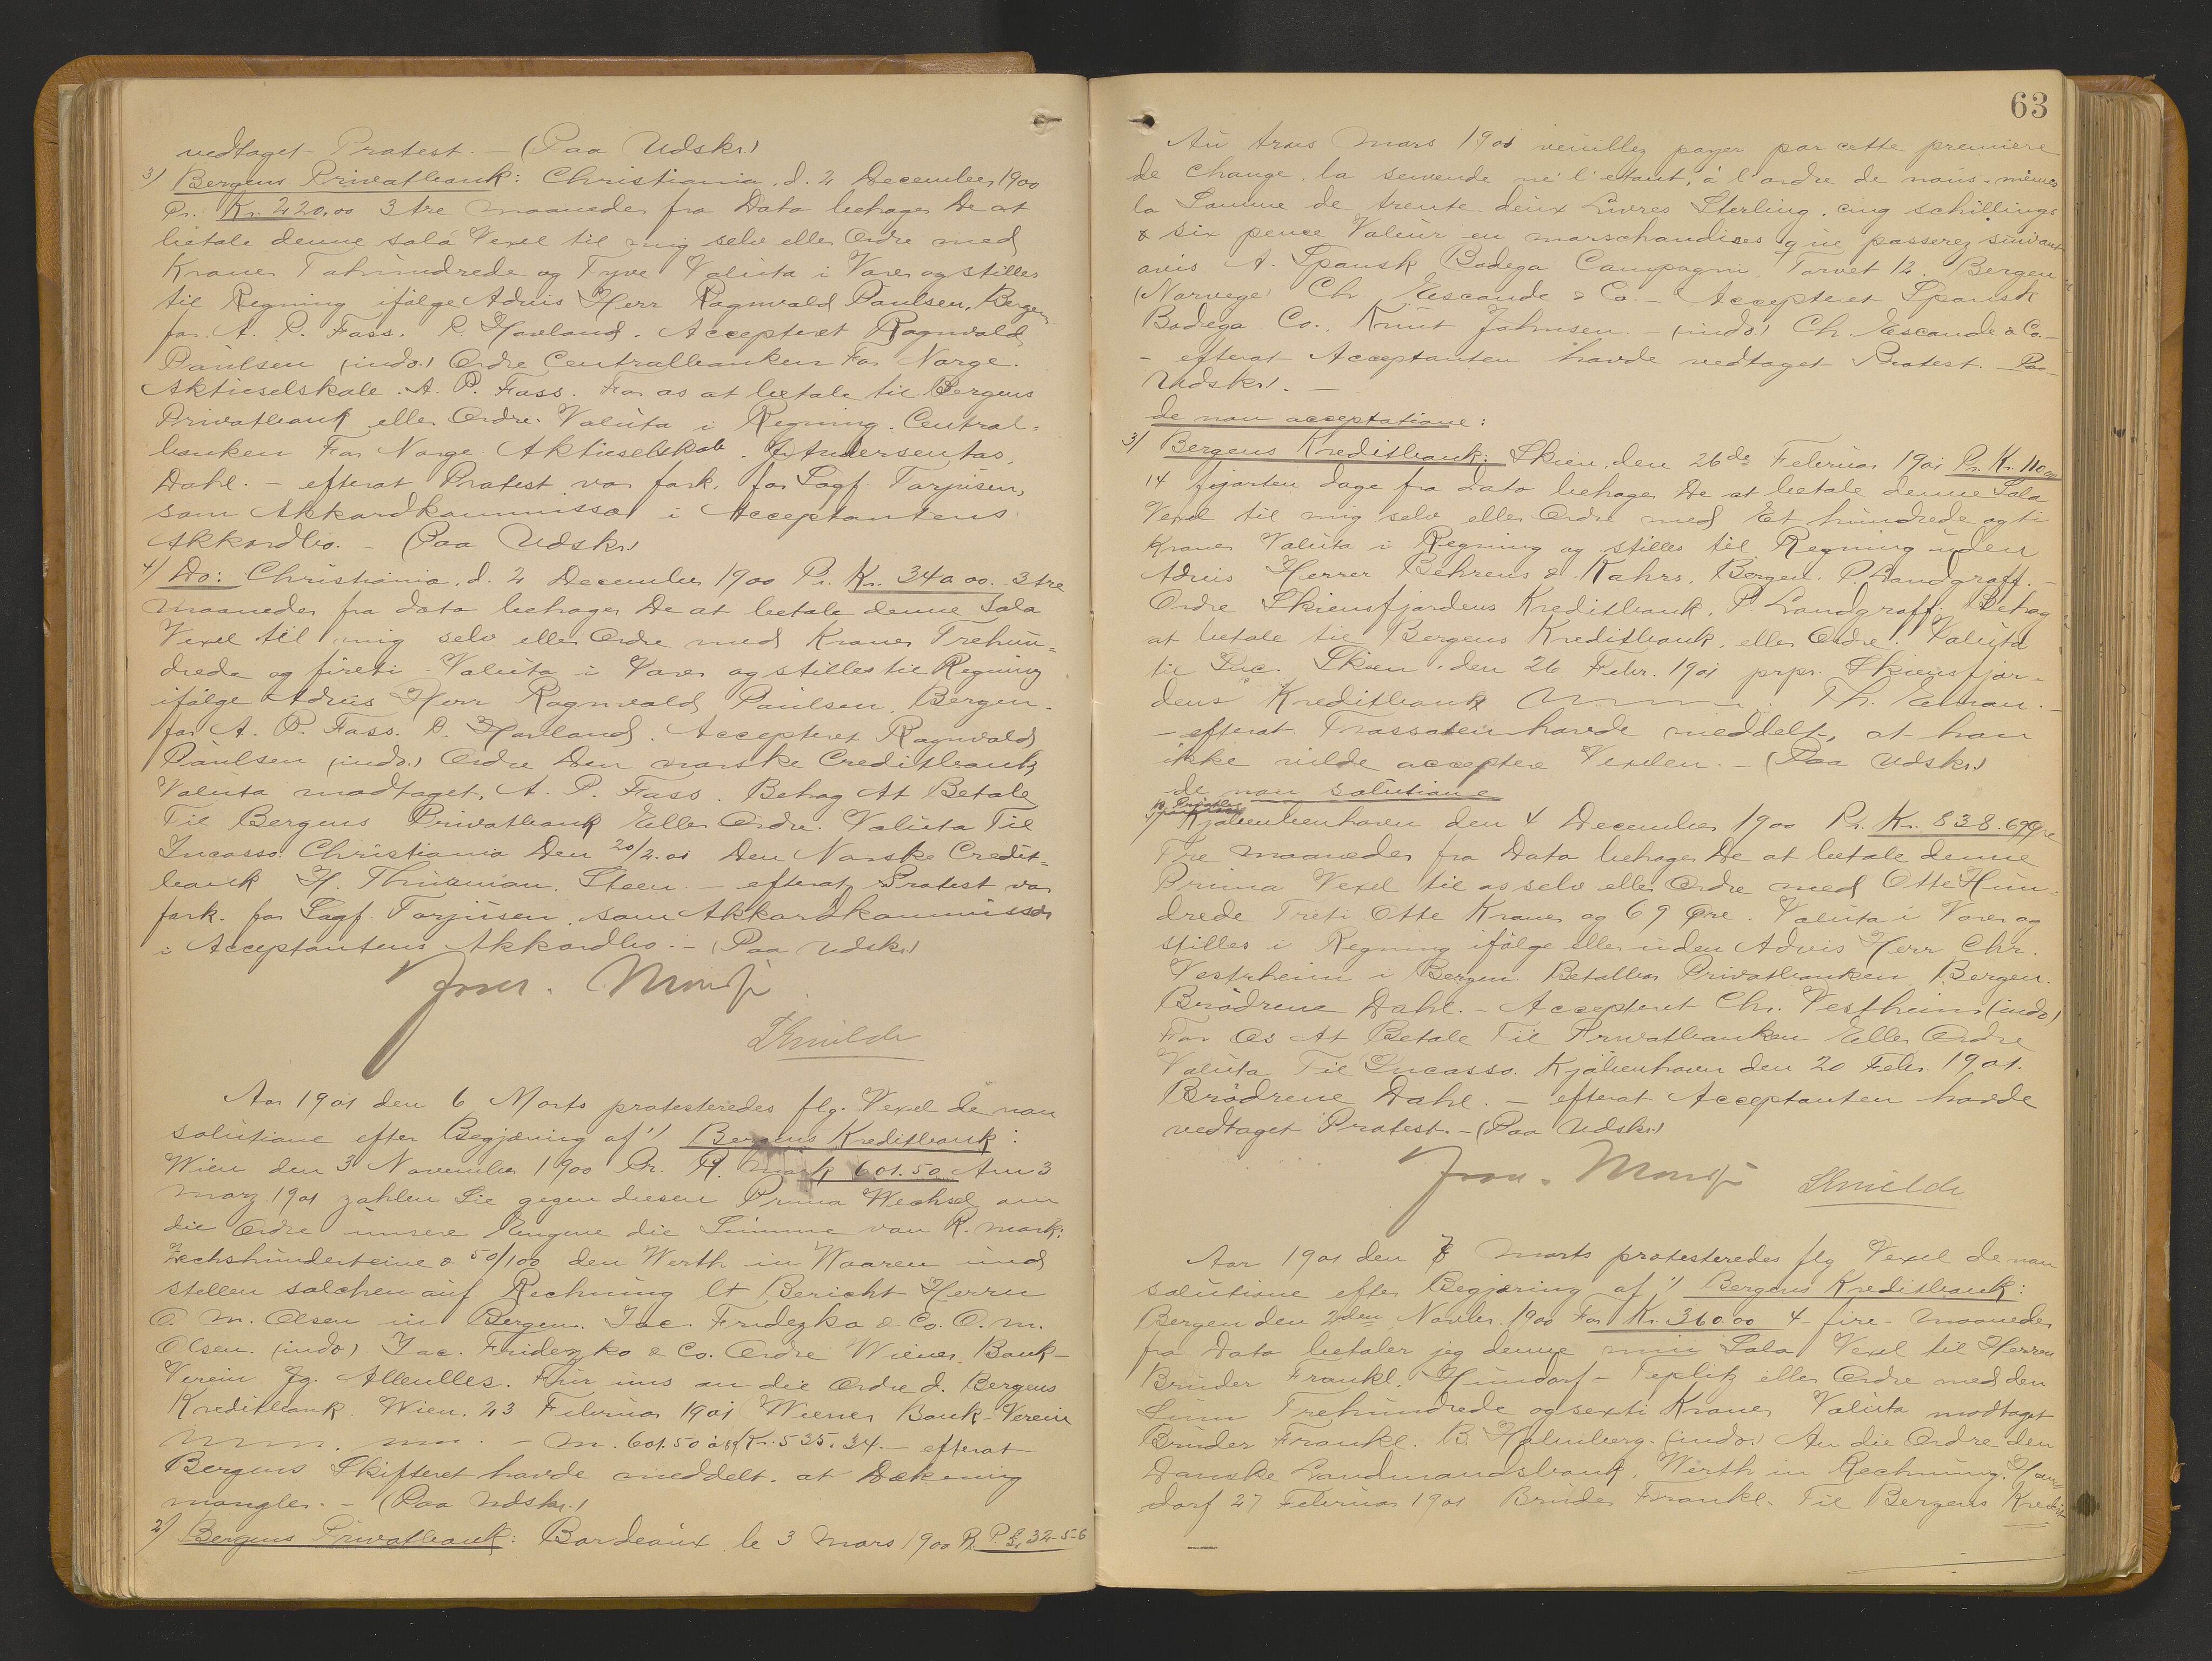 vedtaget Protest. - (Paa Udskr.)
3) Bergens Privatbank: Christiania, d. 2 December 1900
Pr. Kr. 220,00 3 tre maaneder fra Data behager De at
betale denne sola Vexel til mig selv eller Ordre med
Kroner Tohundrede og Tyve Valuta i Varer og stilles
til Regning ifølge Advis Herr Ragnvald Paulsen, Bergen
for A. P. Foss. P. Havland. Accepteret Ragnvald
Paulsen (indo.) Ordre Centralbanken For Norge.
Aktieselskab. A. P. Foss. For os at betale til Bergens
Privatbank eller Ordre. Valuta i Regning. Central-
banken For Norge Aktieselskab. Andersen
Dahl. - efterat Protest var fork. for Sagf. Torjusen,
som Akkordkommissær i Acceptantens
Akkordbo. - (Paa Udskr.)
4) Do: Christiania, d. 2 December 1900 Pr. Kr. 340.00. 3 tre
maaneder fra data behager De at betale denne Sola
Vexel til mig selv eller Ordre med Kroner Trehun-
drede og fireti - Valuta i Varer og stilles til Regning
ifølge Advis Herr Ragnvald Paulsen, Bergen.
for A. P. Foss. P. Havland. Accepteret Ragnvald
Paulsen (indo.) Ordre Den norske Creditbank
Valuta modtaget, A. P. Foss. Behag At Betale
Til Bergens Privatbank Eller Ordre. Valuta Til
Incasso. Christiania Den 20/2.01 Den Norske Credit-
bank H. Steen. - efterat Protest var
fork. for Sagf. Torjusen, som Akkordkommissær
i Acceptantens Akkordbo. - (Paa Udskr.)
Aar 1901 den 6 Marts protesteredes flg. Vexel de non
solutione efter Begjæring af 1) Bergens Kreditbank:
Wien den 3 November 1900 Pr. R. Mark 601.50 Am 3
März 1901 zahlen Sie gegen diesen Prima Wechsel an
die Ordre unsere Eugene die Summe von R. mark:
Zechshunderteine & 50/100 den Werth in Waaren und
stellen solchen auf Rechnung lt Bericht Herrn
O. M. Olsen in Bergen. Jac. Fridezko & Co. O. M.
Olsen. (indo) Jac. Fridezko & Co. Ordre Wiener Bank-
Verein Für uns an die Ordre d. Bergens
Kreditbank. Wien. 23 Februar 1901 Wiener Bank-Verein
- M. 601.50 à 89 Kr. 535.34. - efterat
Bergens Skifteret havde meddelt, at Dækning
mangler. - (Paa Udskr.)
2) Bergens Privatbank: Bordeaux, le 3 Mars 1900 32-5-6
63
Au trois Mars 1901 veuillez payer par cette premiere
de change, la seconde ne l'etant, à l'ordre de nous-mêmes
la Somme de trente deux Livres Sterling, cinq schillings
& six pence Valeur en marschandises que passerez suivant
avis A. Spansk Bodega Compagni Torvet 12. Bergen
(Norvege) Ch. Escande & Co. - Accepteret Spansk
Bodega Co. Knut Johnsen. - (indo) Ch. Escande & Co.
- efterat Acceptanten havde vedtaget Protest. - Paa
Udskr. -
de non acceptatione:
3) Bergens Kreditbank: Skien, den 26de Februar 1901 Pr. Kr. 110.00
14 fjorten dage fra dato behager De at betale denne Sola
Vexel til mig selv eller Ordre med Et hundrede og ti
Kroner Valuta i Regning og stilles til Regning uden
Advis Herrer Behrens & Kahrs. Bergen. P. Landgraff. -
Ordre Skiensfjordens Kreditbank. P. Landgraff. Behag
at betale til Bergens Kreditbank eller Ordre. Valuta
til Inc. Skien. den 26 Febr. 1901 prpr. Skiensfjor-
dens Kreditbank Th.
- efterat Trassaten havde meddelt, at han
ikke vilde acceptere Vexlen. - (Paa Udskr.)
de non solutione
Kjøbenhenhaven den 4 December 1900 Pr. Kr. 838.69 Øre
Tre maaneder fra Dato behager De at betale denne
Prima Vexel til os selv eller Ordre med Otte Hun-
drede Treti Otte Kroner og 69 Øre. Valuta i Varer og
stilles i Regning ifølge eller uden Advis Herr Chr.
Vestrheim i Bergen. Betalbar Privatbanken Bergen.
Brödrene Dahl. - Accepteret Chr. Vestheim (indo)
For Os At Betale Til Privatbanken Eller Ordre
Valuta Til Incasso. Kjøbenhaven den 20 Febr. 1901.
Brödrene Dahl. - efterat Acceptanten havde
vedtaget Protest. - (Paa Udskr.)
Aar 1901 den 8 Marts protesteredes flg Vexel de non
solutione efter Begjæring af 1) Bergens Kreditbank:
Bergen den 2den Novbr. 1900 For Kr. 360.00 4 - fire - Maaneder
fra Dato betaler jeg denne min Sola Vexel til Herren
Brüder Frankl. Hundorf - Teplitz eller Ordre med den
Sum Trehundrede og sexti Kroner Valuta modtaget
Brüder Frankl. B. Holmberg. (indo) An die Ordre den
Danske Landmandsbank. Werth in Rechnung. Hun-
dorf 27 Februar 1901 Brüder Frankl. Til Bergens Kredit